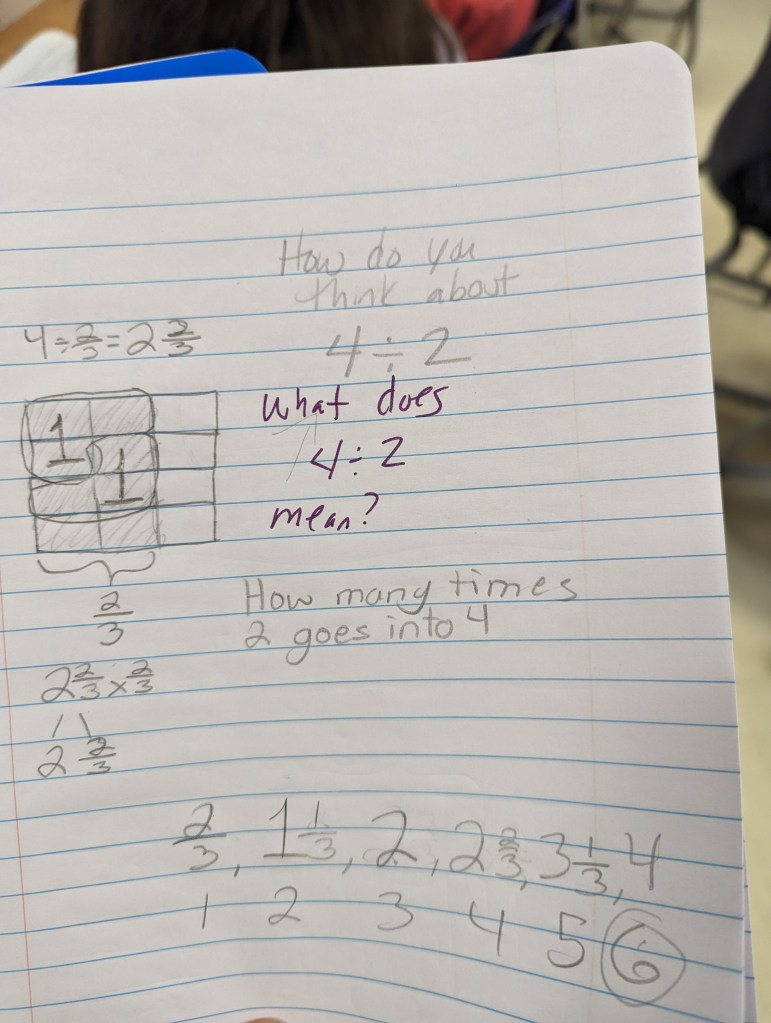 How do you
think about
4 ÷ 2
4 ÷ 2/3 = 2 2/3
What does
4 ÷ 2
mean?
1
1
2/3
How many times
2 goes into 4
2 2/3 × 2/3
2 2/3
2/3, 1 1/3, 2, 2 2/3, 3 1/3, 4
1 2 3 4 5 6